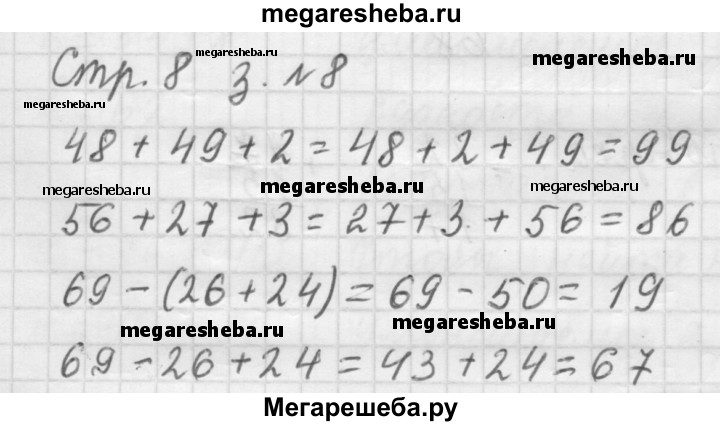 megaresheba.ru
megaresheba.ru
Стр. 8 з. №8
megaresheba.ru
megaresheba.ru
48 + 49 + 2 = 48 + 2 + 49 = 99
megaresheba.ru
megaresheba.ru
megaresheba.ru
56 + 27 + 3 = 27 + 3 + 56 = 86
69 - (26 + 24) = 69 - 50 = 19
megaresheba.ru
megaresheba.ru
69 - 26 + 24 = 43 + 24 = 67
Мегарешеба.ру